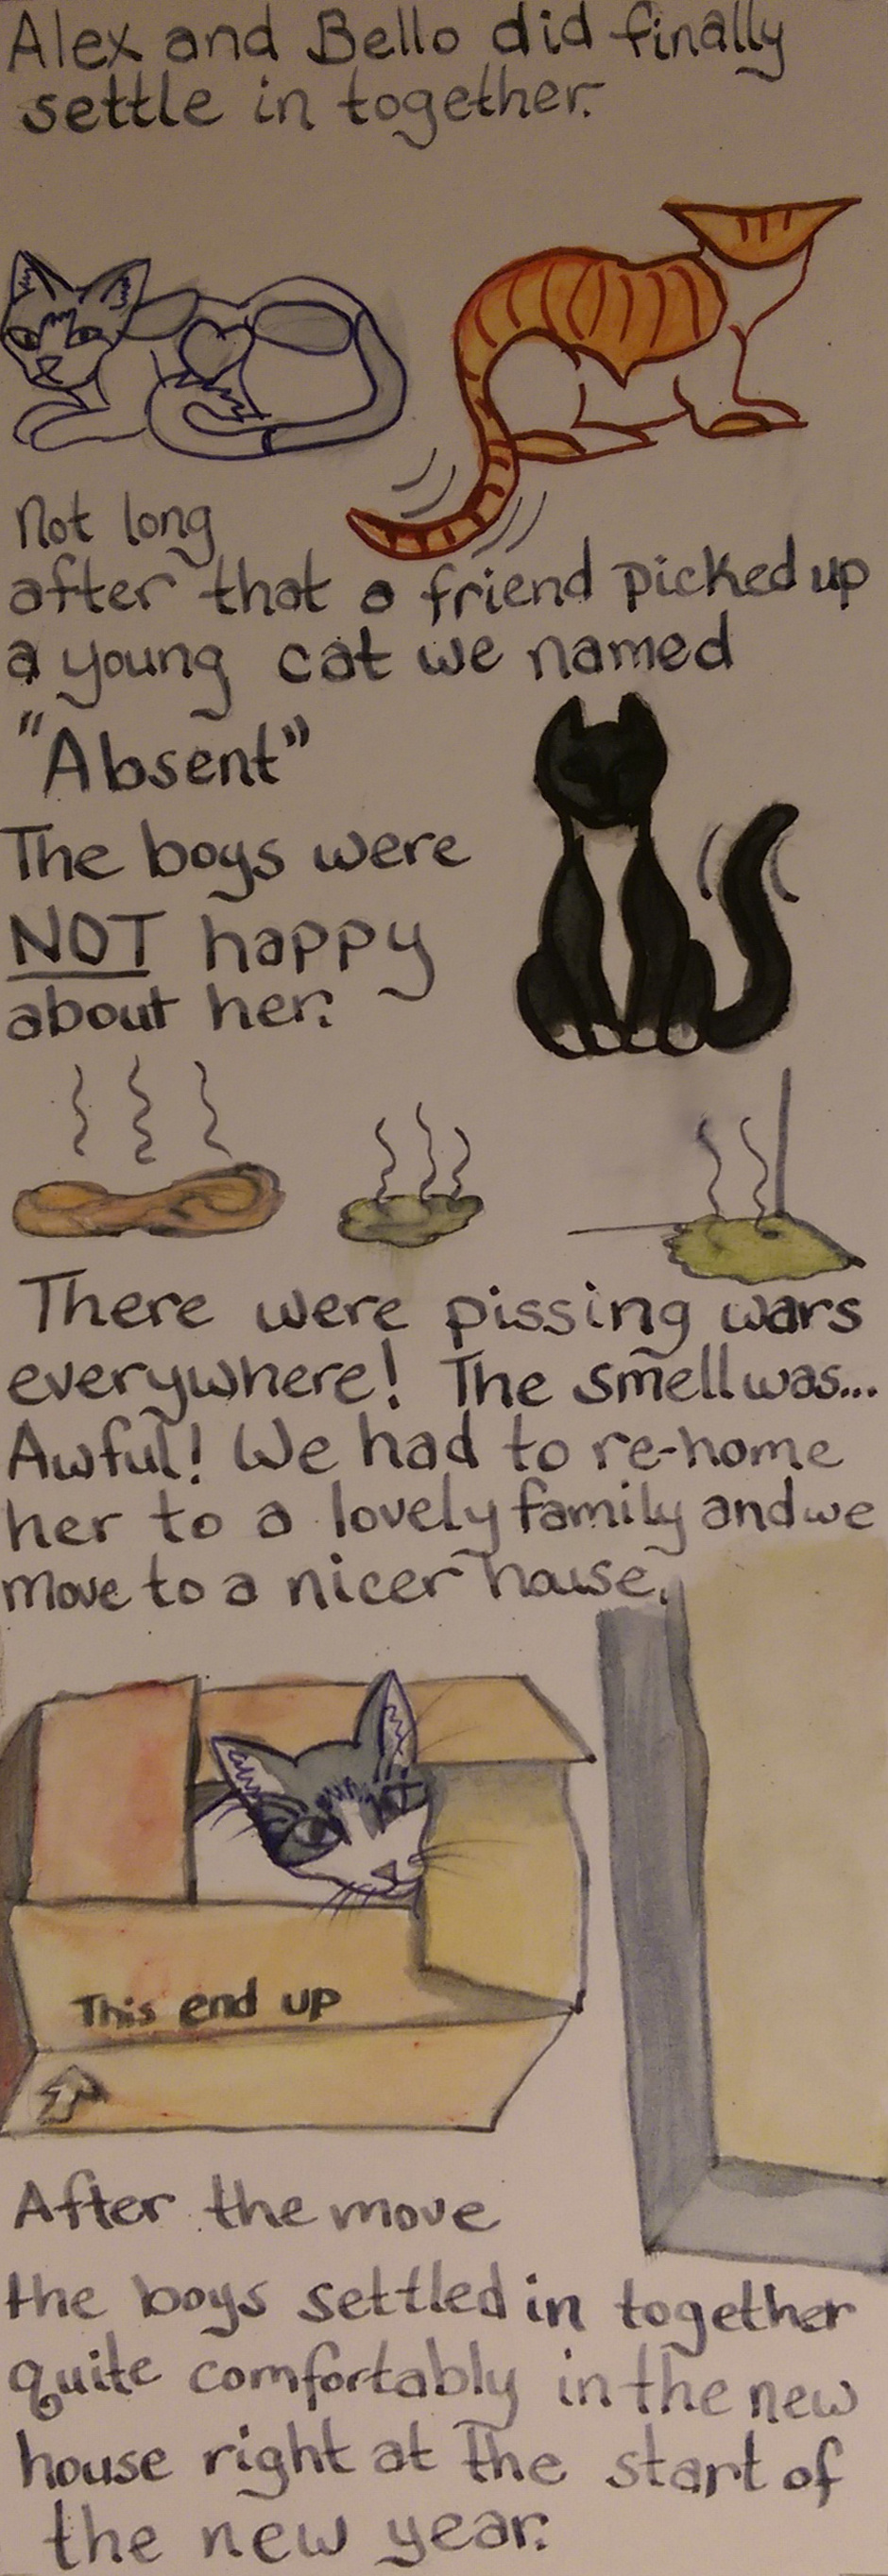 Alex and Bello did finally
settle in together.
Not long
after that a friend picked up
a young cat we named
"Absent"
The boys were
NOT happy
about her.
There were pissing wars
everywhere! The smell was...
Awful! We had to re-home
her to a lovely family and we
move to a nicer house.
This end up
After the move
the boys settled in together
quite comfortably in the new
house right at the start of
the new year.